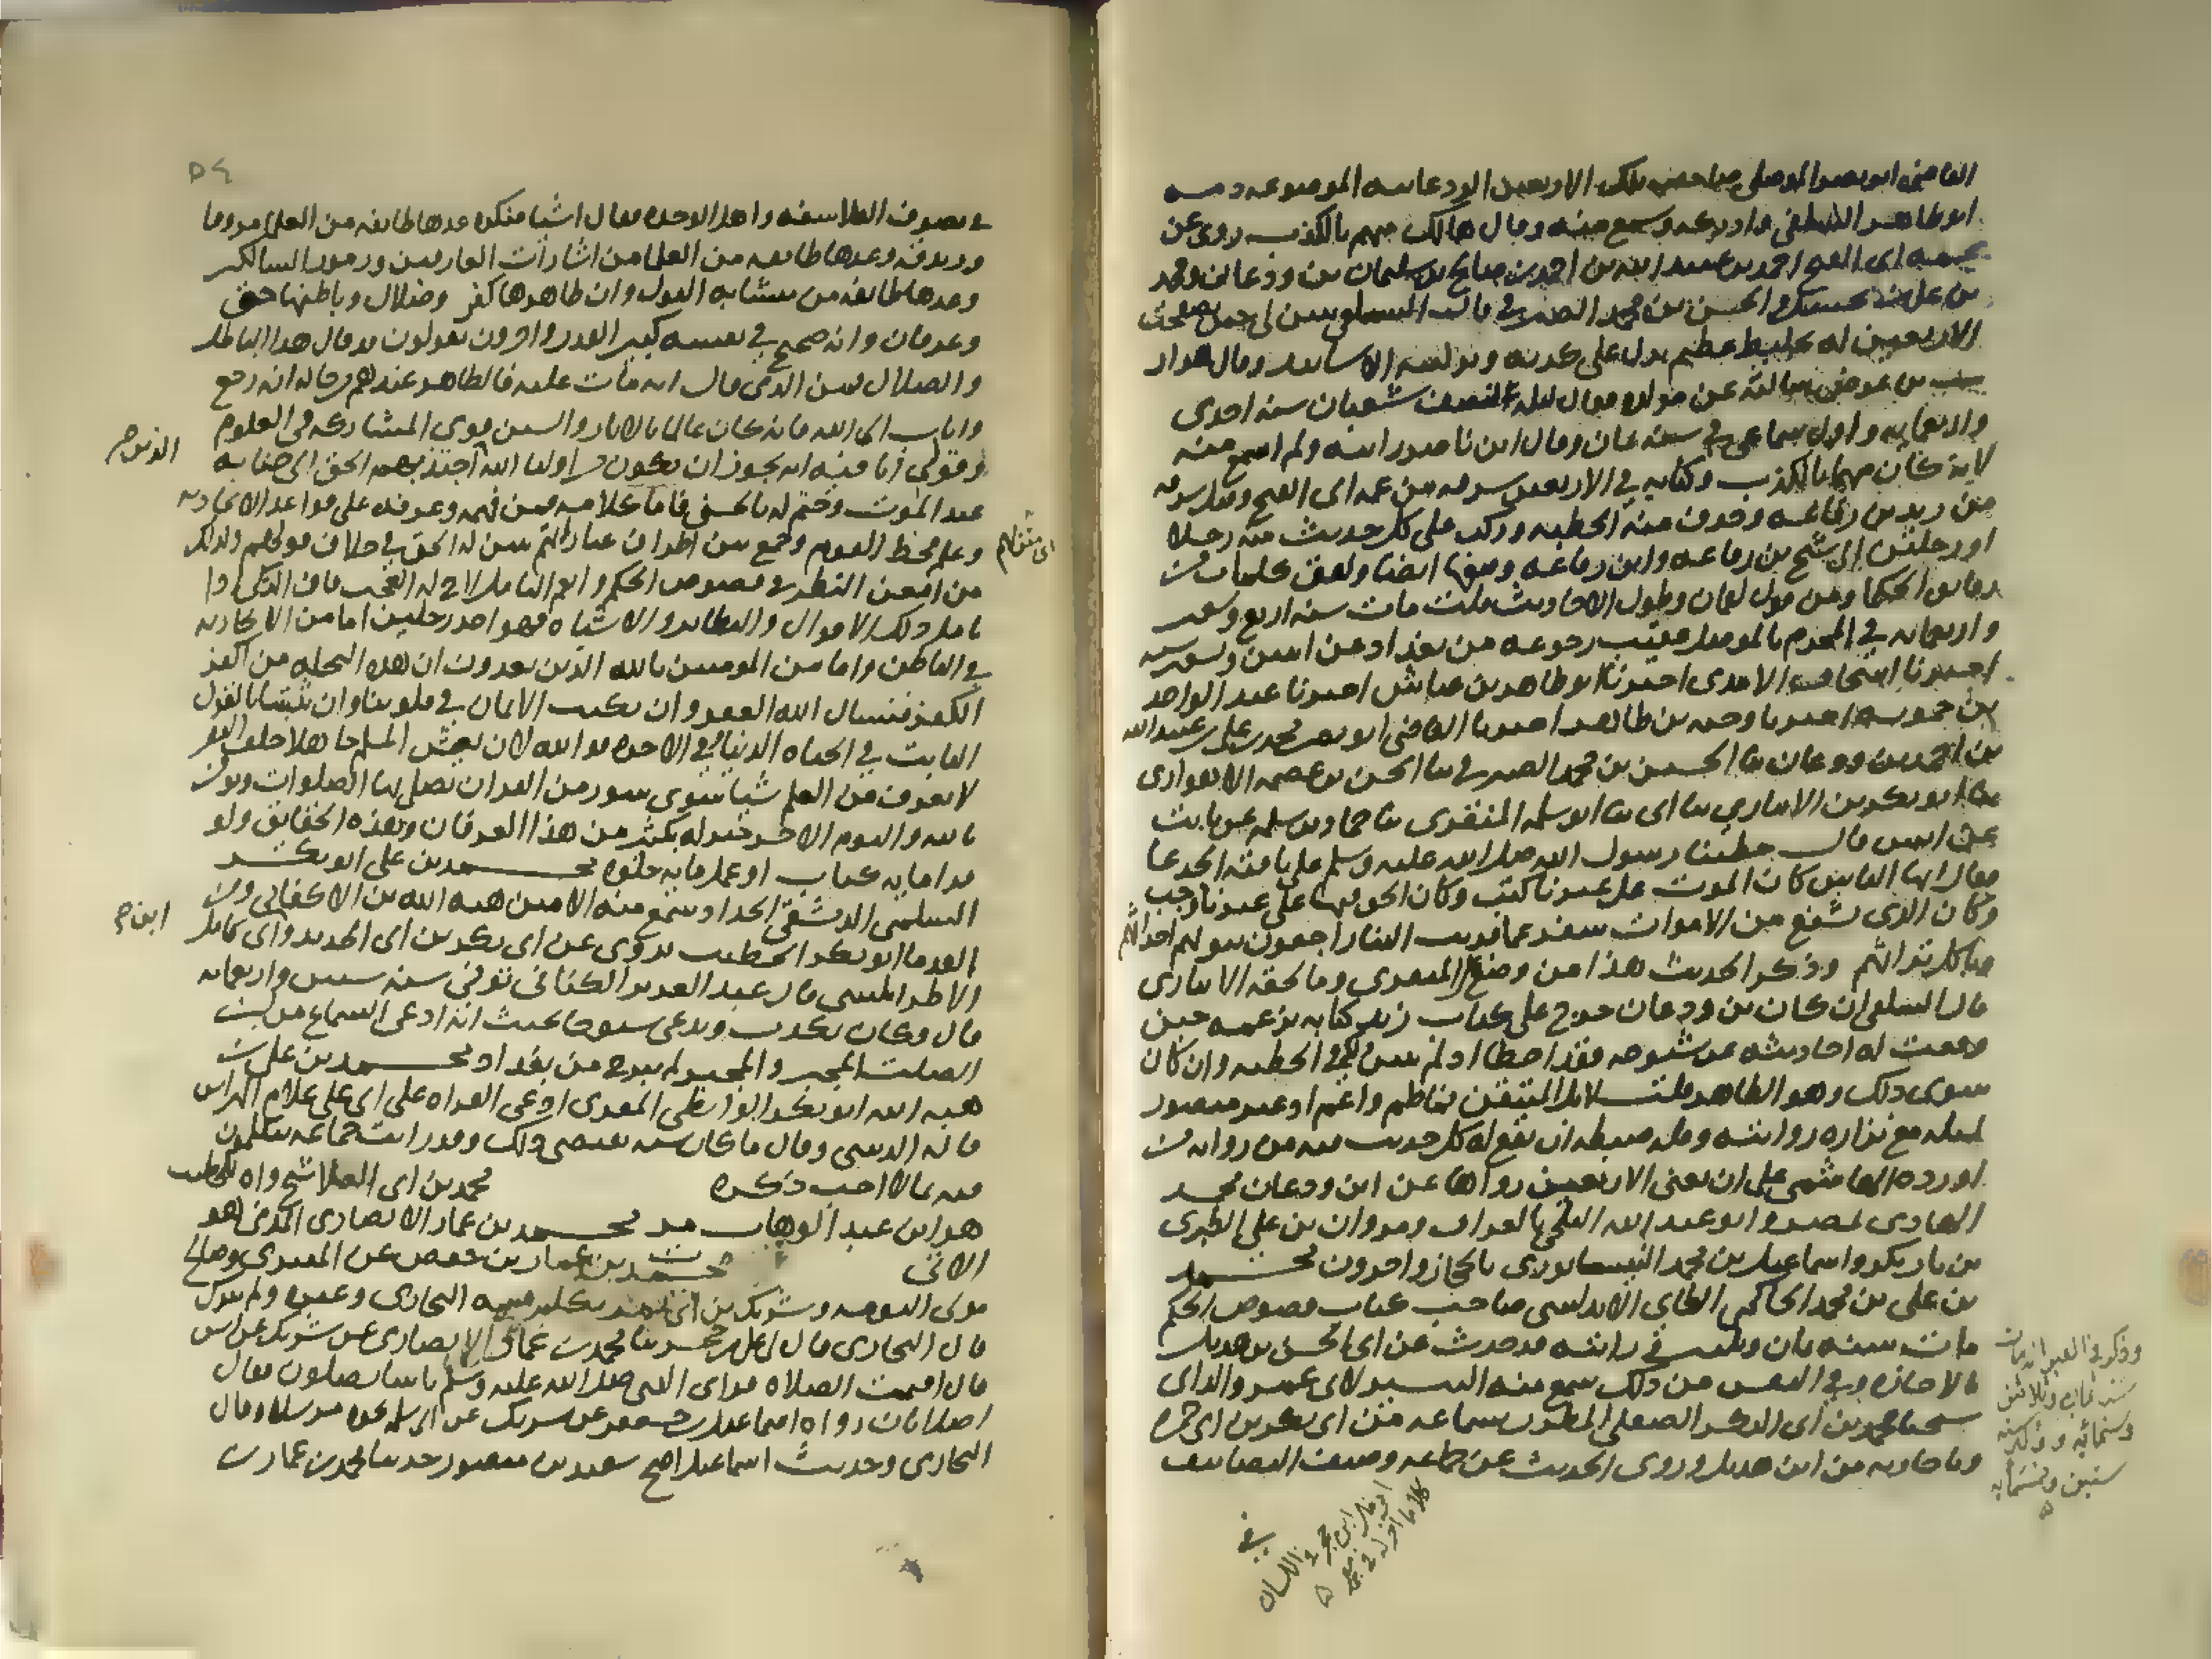 القاضي ابو نصر الموصلي صاحب تلك الاربعين الودعانيه الموضوعه ذمه
ابو طاهر السلفي وادركه وسمع منه وقال هالك متهم بالكذب روى عن
عمه ابي الفتح احمد بن عبيد الله بن احمد بن صالح بن سليمان بن ودعان ومحمد
بن علي بن والحسين بن محمد الصيرفي قال السلفي تبين لي حين تصفحت
الاربعين له تخليط عظيم يدل على كذبه وتركيبه الاسانيد وقال هزار
بن عوض سالته عن مولده فقال ليله النصف شعبان سنه احدى
واربعمايه واول سماعي في سنه ثمان وقال ابن ناصر رايته ولم اسمع منه
لانه كان متهما بالكذب وكتابه في الاربعين سرقه من عمه ابي الفتح وقيل سرقه
من زيد بن رفاعه وحذف منه الخطبه وركب على كل حديث منه رجلا
او رجلين الى شيخ بن رفاعه وابن رفاعه وضعها ايضا ولفق كلمات من
رقايق الحكما ومن قول لقمان وطول الاحاديث قلت مات سنه اربع وتسعين
واربعمايه في المحرم بالموصل عقيب رجوعه من بغداد عن اثنين وتسعين سنه
اخبرنا اسحاق الامدى اخبرنا ابو طاهر بن عباس اخبرنا عبد الواحد
بن حمويه اخبرنا وجيه بن طاهر اخبرنا القاضي ابو نصر محمد بن علي بن عبيد الله
بن احمد بن ودعان ثنا الحسين بن محمد الصيرفي ثنا الحسن بن عصمه الاهوازى
ثنا ابو بكر بن الانباري ثنا ابي ثنا ابو سلمه المنقرى ثنا حماد بن سلمه عن ثابت
عن انس قال خطبنا رسول الله صلى الله عليه وسلم على ناقته الجدعا
فقال ايها الناس كان الموت على غيرنا كتب وكان الحق فيها على غيرنا وجب
وكان الذى نشيع من الاموات سفر عما قريب الينا راجعون نبوئهم اجداثهم
وناكل تراثهم وذكر الحديث هذا من وضع المنقرى وما لحقه الانبارى
قال السلفي ان كان بن ودعان خرج على كتاب زيد كتابه بزعمه حين
وقعت له احاديثه عن شيوخه فقد اخطا اذ لم يبين ذلك في الخطبه وان كان
سوى ذلك وهو الظاهر قلت بل المتيقن فاطم واعم اذ غير متصور
لمثله مع نزاره روايته وقله ضبطه ان يقع له كل حديث فيه من روايه من
اورده الهاشمي على ان يعنى الاربعين رواها عن ابن ودعان محمد
الهادى بمصر وابو عبد الله البلخي بالعراق ومروان بن علي الطبرى
بن بديار بكر واسماعيل بن محمد النيسابوري بالحجاز واخرون محمد
بن علي بن محمد الحاتمي الطاي الاندلسي صاحب كتاب فصوص الحكم
مات سنه ثمان وثلاثين ورايته قد حدث عن ابي الحسن بن هذيل
بالاجازه وفي النفس من ذلك سمع منه التيسير لابي عمرو الداني
شيخنا محمد بن ابي الذكر الصقلي المطرز بسماعه من ابي بكر بن ابي جمره
وباجازته من ابن هذيل وروى الحديث عن جماعه وصنف التصانيف
وذكر في العبر انه مات
سنه ثمان وثلاثين
وستمائه وولد سنه
ستين وخمسمايه
في
٥٤
في تصوف الفلاسفه واهل الوحده فقال اشيا منكره عدها طايفه من العلما مروقا
وزندقه وعدها طايفه من العلما من اشارات العارفين ورموز السالكين
وعدها طايفه من متشابه القول وان ظاهرها كفر وضلال وباطنها حق
وعرفان وانه صحيح في نفسه كبير القدر واخرون يقولون قد قال هذا الباطل
والضلال فمن الذى قال انه مات عليه فالظاهر عندهم من حاله انه رجع
واناب الى الله فانه كان عالما بالاثار والسنن قوى المشاركه في العلوم
وقولي انا فيه انه يجوز ان يكون من اوليا الله اجتذبهم الحق الى جنابه
عند الموت وختم له بالحسنى فاما كلامه فمن فهمه وعرفه على قواعد الاتحاديه
وعلم محط القوم وجمع بين اطراف عباراتهم تبين له الحق في خلاف قولهم وكذلك
من امعن النظر في فصوص الحكم وانعم التامل لاح له العجب فان الذكي اذا
تامل ذلك الاقوال والنظاير والاشباه فهو احد رجلين اما من الاتحاديه
في الباطن واما من المومنين بالله الذين يعدون ان هذه النحله من اكفر
الكفر فنسال الله العفو وان يكتب الايمان في قلوبنا وان يثبتنا بالقول
الثابت في الحياه الدنيا وفي الاخره فوالله لان يعيش المسلم جاهلا خلف البقر
لا يعرف من العلم شيا سوى سور من القران يصلي بها الصلوات ويومن
بالله واليوم الاخر خير له بكثير من هذا العرفان وهذه الحقايق ولو
قرا مايه كتاب او عمل مايه خلوه محمد بن علي ابو بكر
السلمي الدمشقي الحداد سمع منه الامين هبه الله بن الاكفاني ومن
القدما ابو بكر الخطيب يروى عن ابي بكر بن ابي الحديد وابي كامل
الاطرابلسي قال عبد العزيز الكتاني توفي سنه ستين واربعمايه
قال وكان يكذب ويدعي شيوخا بحيث انه ادعى السماع من ابن
الصلت المجبر والمجبر لم يبرح من بغداد محمد بن علي بن
هبه الله ابو بكر الواسطي المقرى ادعى القراه على ابي علي غلام الهراس
قاله الدبيثي وقال ما كان سنه يقتضي ذلك وقد رايت جماعه يتكلمون
فيه بما لا احب ذكره محمد بن ابي العلا شيخ واه للخطيب
هو ابن عبد الوهاب مر محمد بن عمار الانصارى المدني هو
الاتي ت محمد بن عمار بن حفص عن المقبرى وصالح
مولى التومه وشريك بن ابي نمر تكلم فيه البخارى وغيره ولم يترك
قال البخارى قال لي علي بن حجر ثنا محمد بن عمار الانصارى عن شريك عن انس
قال اقيمت الصلاه فراى النبي صلى الله عليه وسلم ناسا يصلون فقال
اصلاتان رواه اسماعيل بن جعفر عن شريك عن ابي سلمه عن مرسلا وقال
البخارى وحديث اسماعيل اصح سعيد بن منصور حدثنا محمد بن عمار بن